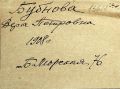 Бубнова
Вера Петровна
1908 г
Б. Морская, 76